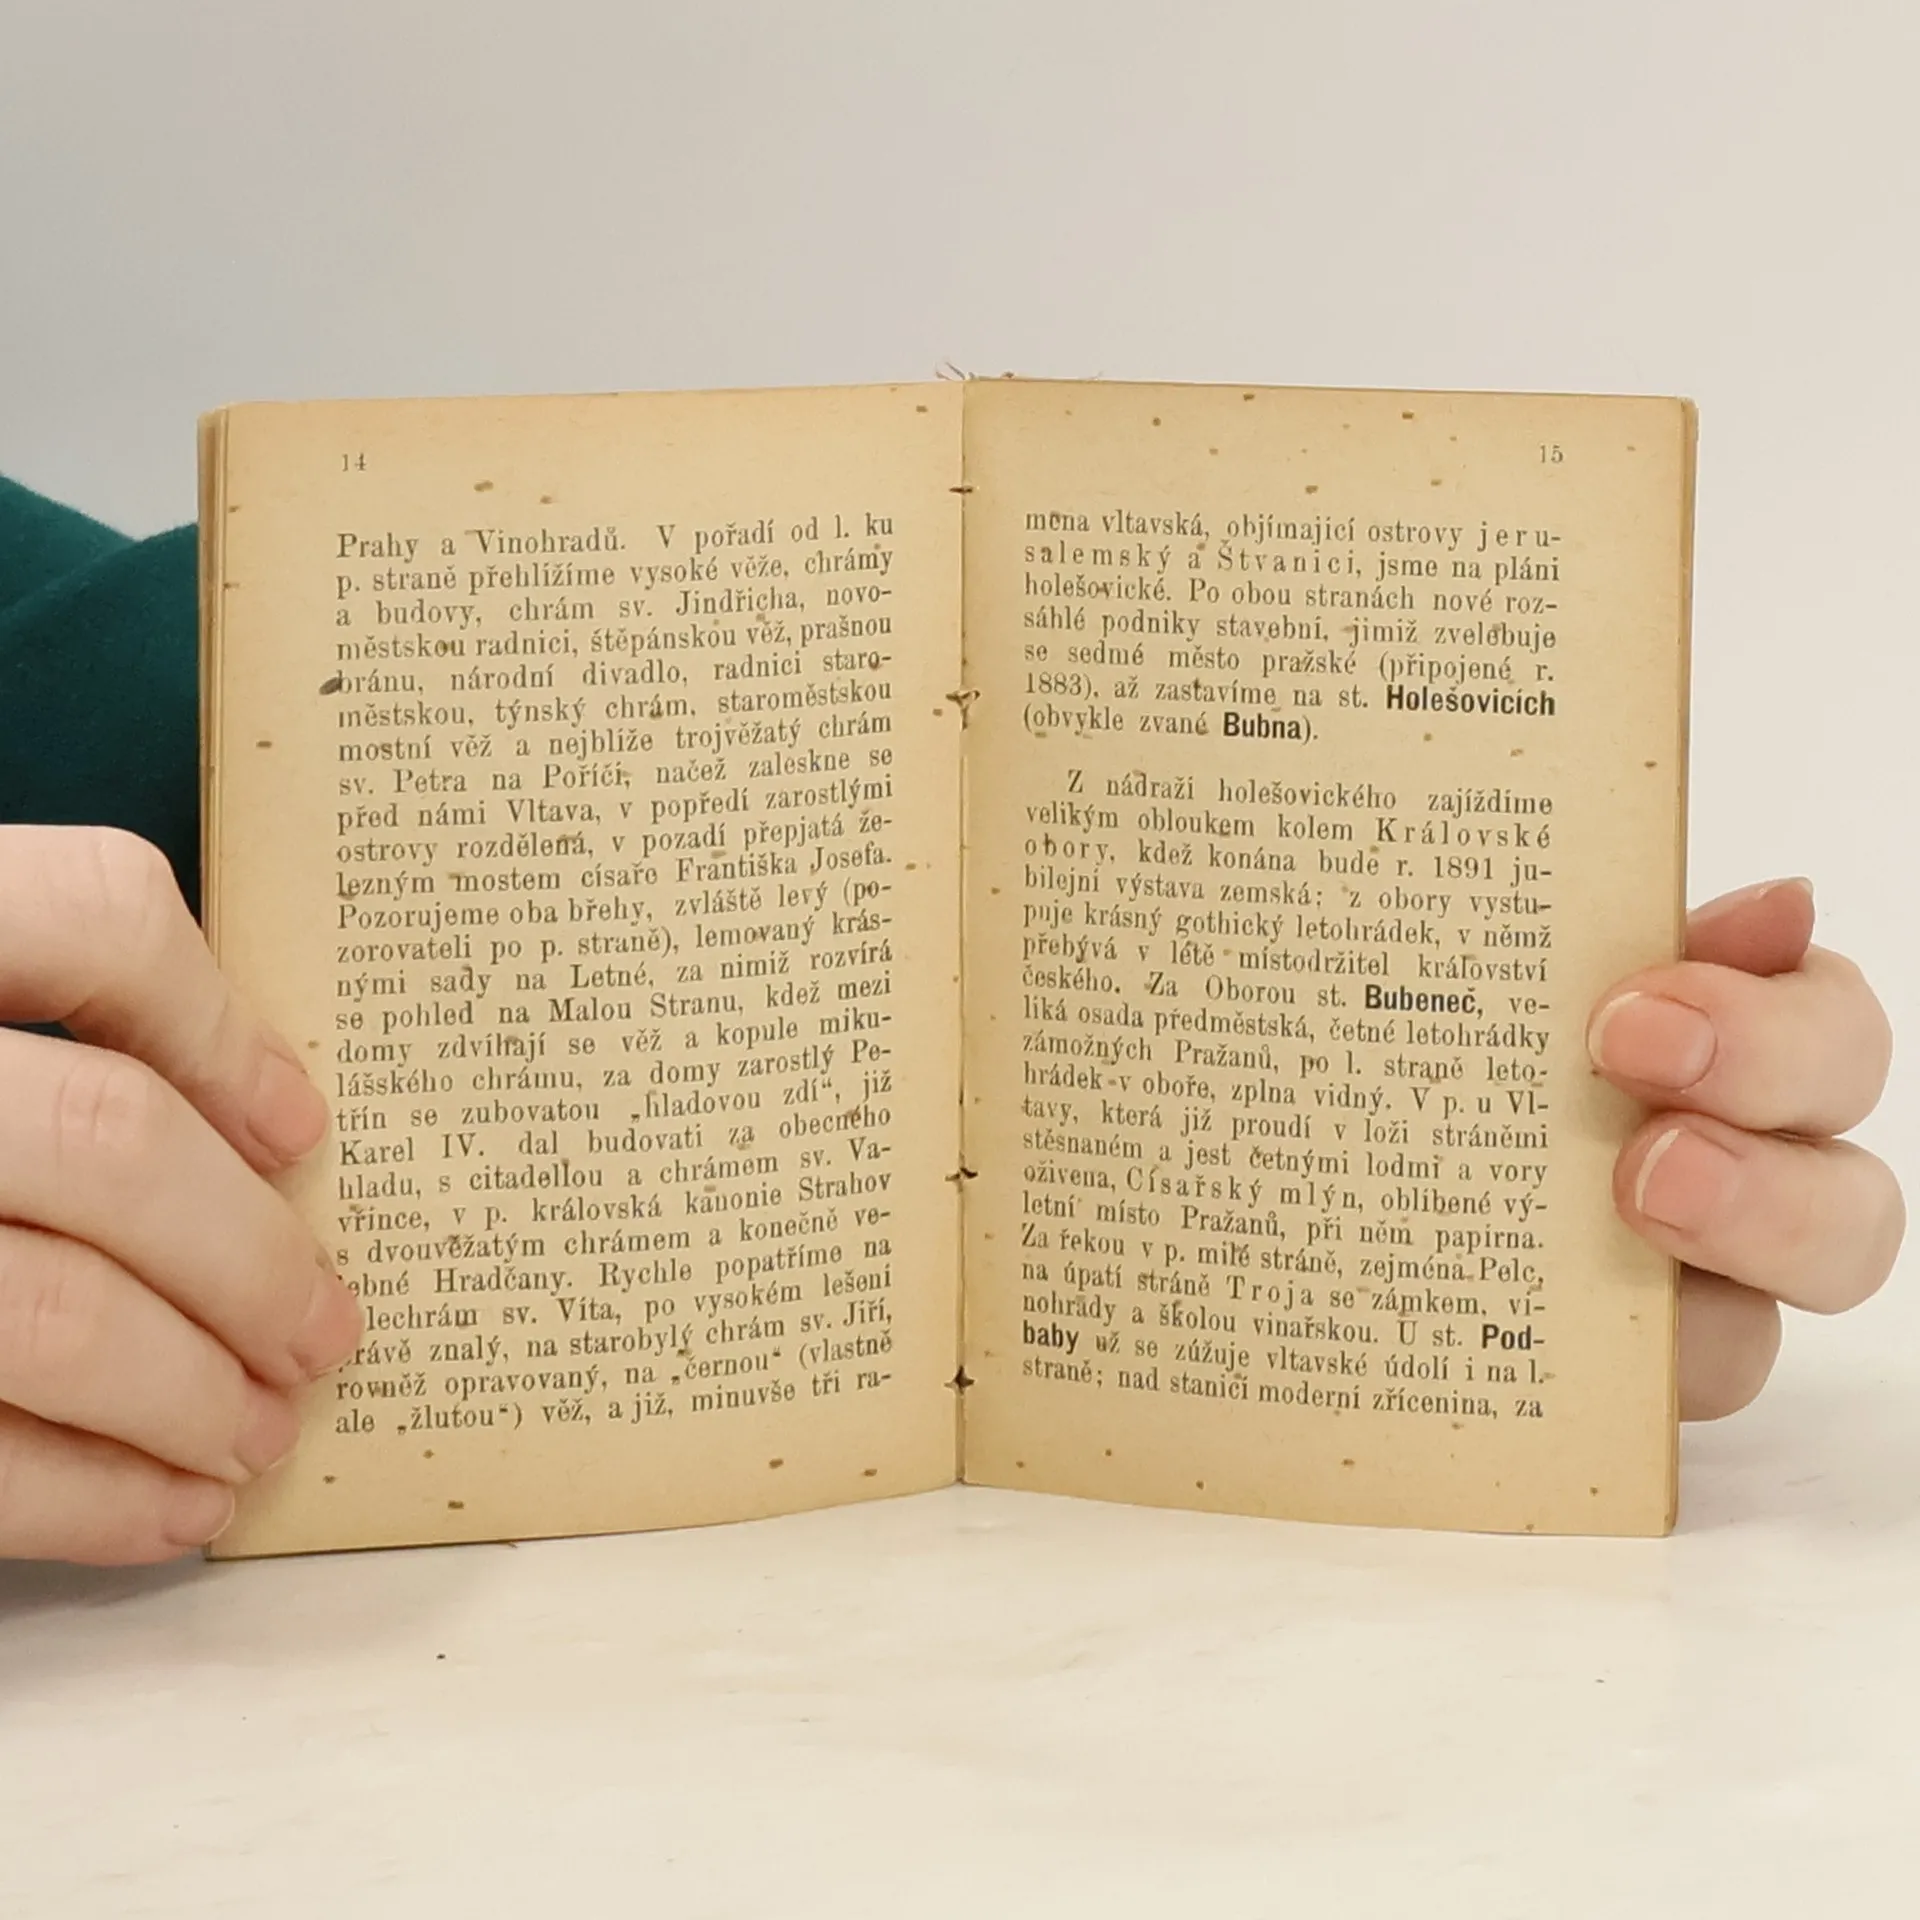 14
Prahy a Vinohradů. V pořadí od l. ku
p. straně přehlížíme vysoké věže, chrámy
a budovy, chrám sv. Jindřicha, novo-
městskou radnici, štěpánskou věž, prašnou
bránu, národní divadlo, radnici staro-
městskou, týnský chrám, staroměstskou
mostní věž a nejblíže trojvěžatý chrám
sv. Petra na Poříčí, načež zaleskne se
před námi Vltava, v popředí zarostlými
ostrovy rozdělená, v pozadí přepjatá že-
lezným mostem císaře Františka Josefa.
Pozorujeme oba břehy, zvláště levý (po-
zorovateli po p. straně), lemovaný krás-
nými sady na Letné, za nimiž rozvírá
se pohled na Malou Stranu, kdež mezi
domy zdvihají se věž a kopule miku-
lášského chrámu, za domy zarostlý Pe-
třín se zubovatou „hladovou zdí“, již
Karel IV. dal budovati za obecného
hladu, s citadellou a chrámem sv. Va-
vřince, v p. královská kanonie Strahov
s dvouvěžatým chrámem a konečně ve-
ebné Hradčany. Rychle popatříme na
lechrám sv. Víta, po vysokém lešení
rávě znalý, na starobylý chrám sv. Jiří,
rovněž opravovaný, na „černou“ (vlastně
ale „žlutou“) věž, a již, minuvše tři ra-
15
mena vltavská, objímající ostrovy jeru-
salemský a Štvanici, jsme na pláni
holešovické. Po obou stranách nové roz-
sáhlé podniky stavební, jimiž zvelebuje
se sedmé město pražské (připojené r.
1883), až zastavíme na st. Holešovicích
(obvykle zvané Bubna).
Z nádraží holešovického zajíždíme
velikým obloukem kolem Královské
obory, kdež konána bude r. 1891 ju-
bilejní výstava zemská; z obory vystu-
puje krásný gothický letohrádek, v němž
přebývá v létě místodržitel království
českého. Za Oborou st. Bubeneč, ve-
liká osada předměstská, četné letohrádky
zámožných Pražanů, po l. straně leto-
hrádek v oboře, zplna vidný. V p. u Vl-
tavy, která již proudí v loži stráněmi
stěsnaném a jest četnými lodmi a vory
oživena, Císařský mlýn, oblíbené vý-
letní místo Pražanů, při něm papírna.
Za řekou v p. milé stráně, zejména Pelc,
na úpatí stráně Troja se zámkem, vi-
nohrady a školou vinařskou. U st. Pod-
baby už se zúžuje vltavské údolí i na l.
straně; nad stanicí moderní zřícenina, za